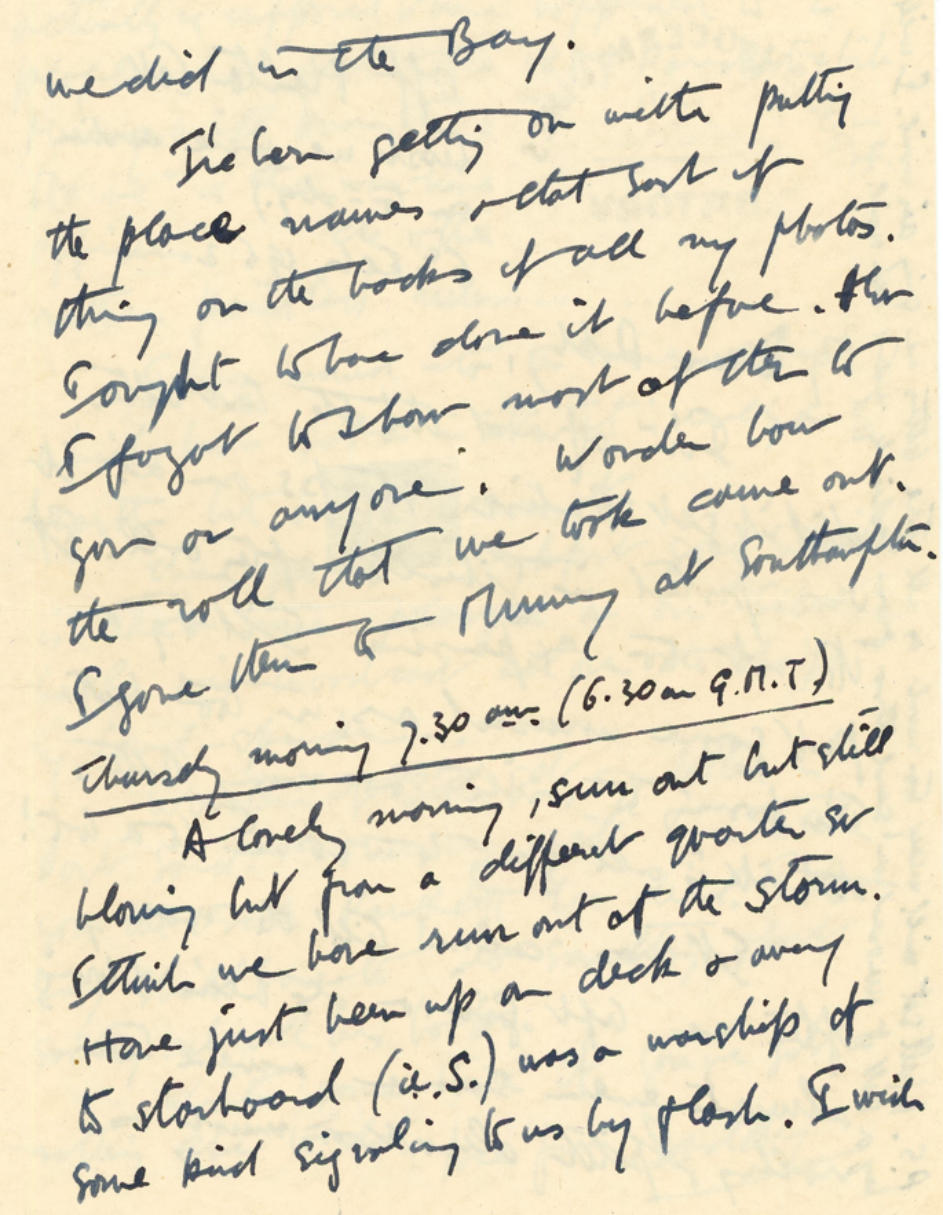 we did in the Bay.
I've been getting on with putting
the place names & that sort of
thing on the backs of all my photos.
I ought to have done it before. Also
I forgot to show most of them to
you or anyone. Wonder how
the roll that we took came out.
I gave them to Mummy at Southampton.
Thursday morning 7.30 am (6.30 am G.M.T.)
A lovely morning, sun out but still
blowing but from a different quarter so
I think we have run out of the storm.
Have just been up on deck & away
to starboard (i.e. S.) was a warship of
some kind signaling to us by flash. I wish